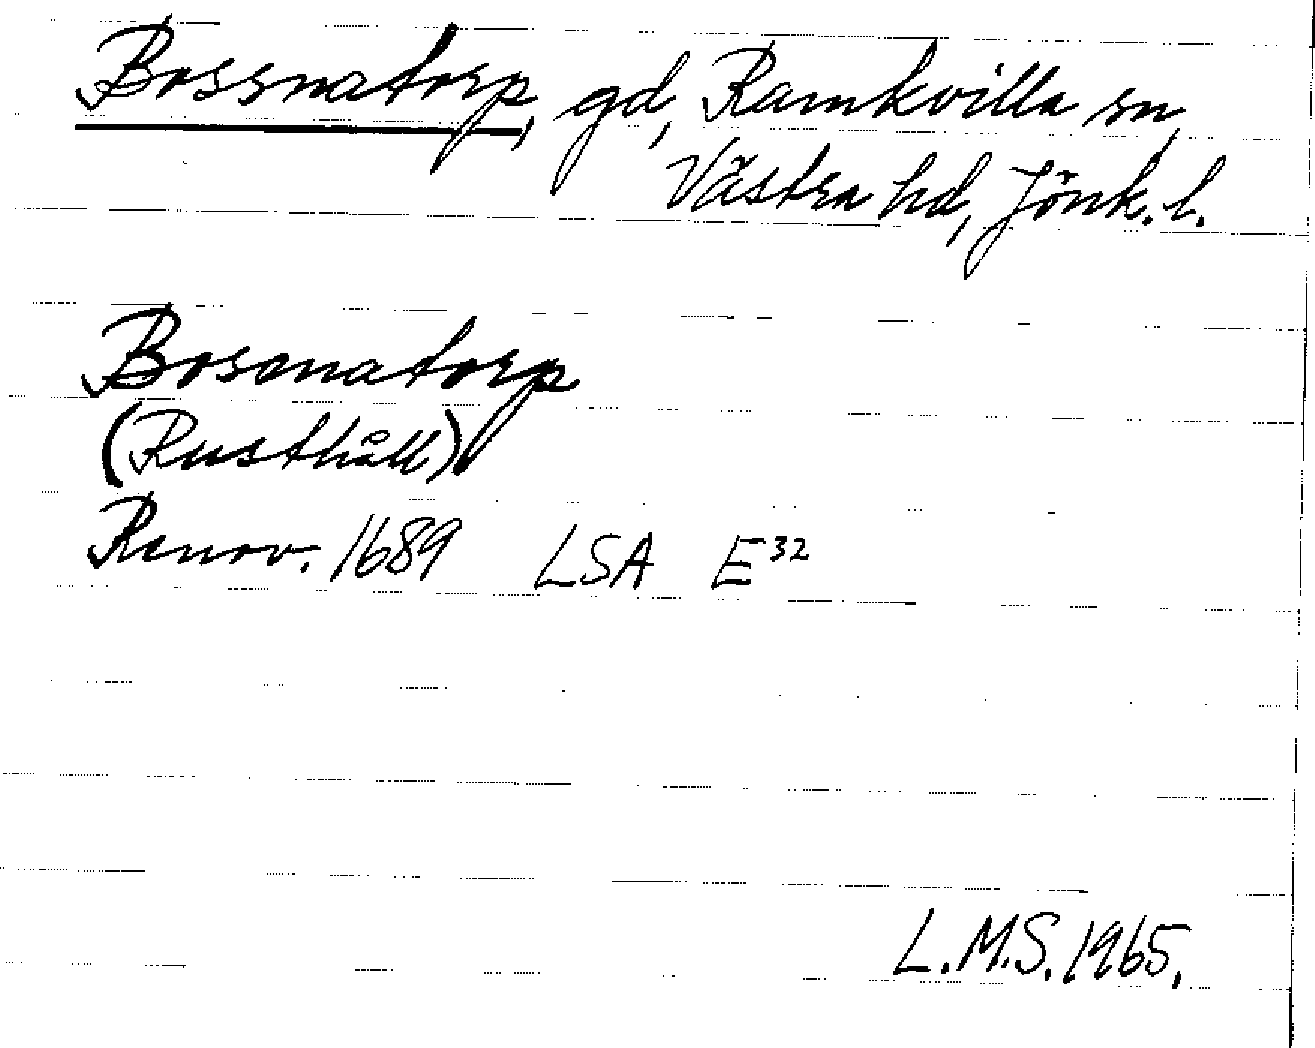 Bossnatorp, gd, Ramkvilla sn,
Västra hd, Jönk. l.
Bosenatorp
(Rusthåll)
Renov. 1689 LSA E³²
L.M.S. 1965.